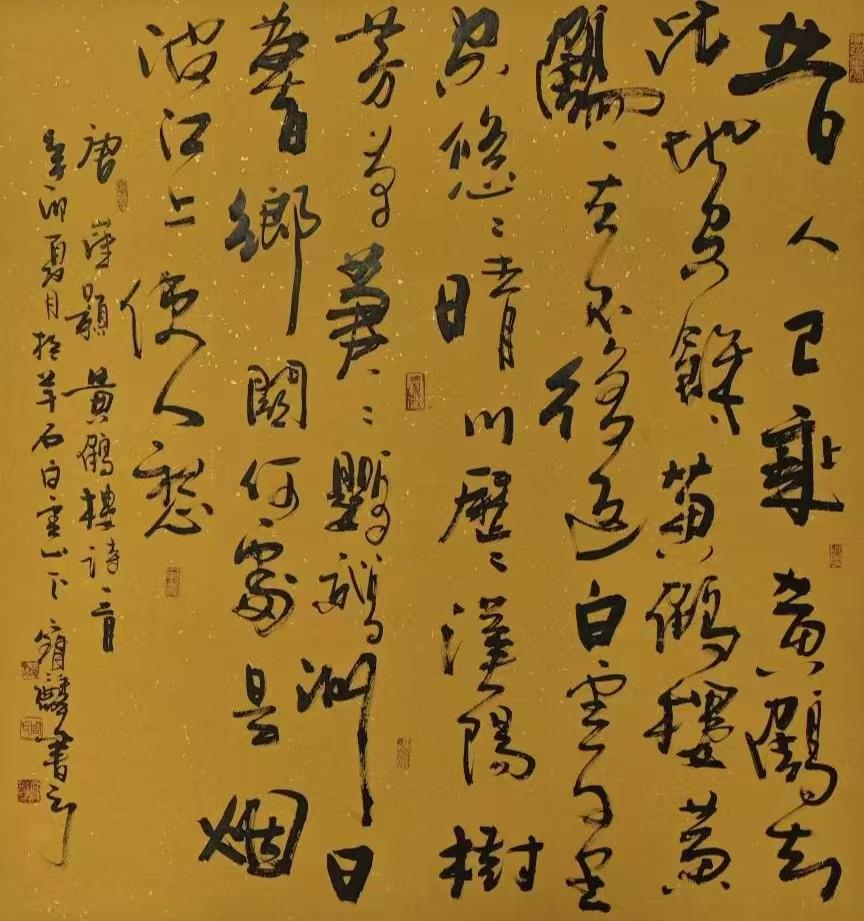 昔人已乘黄鶴去
此地空餘黄鶴樓黄
鶴一去不復返白雲千载
空悠〻晴川歷〻漢陽樹
芳草萋〻鸚鵡洲日
暮鄉關何處是烟
波江上使人愁
唐崔顥黄鶴樓詩一首
辛卯夏月於羊石白雲山下麟書